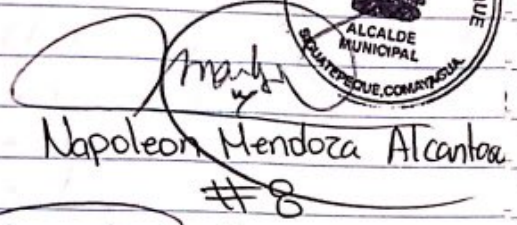 QUE
ALCALDE
MUNICIPAL
SIGUATEPEQUE, COMAYAGUA
Napoleon Mendoza Alcantara
#8